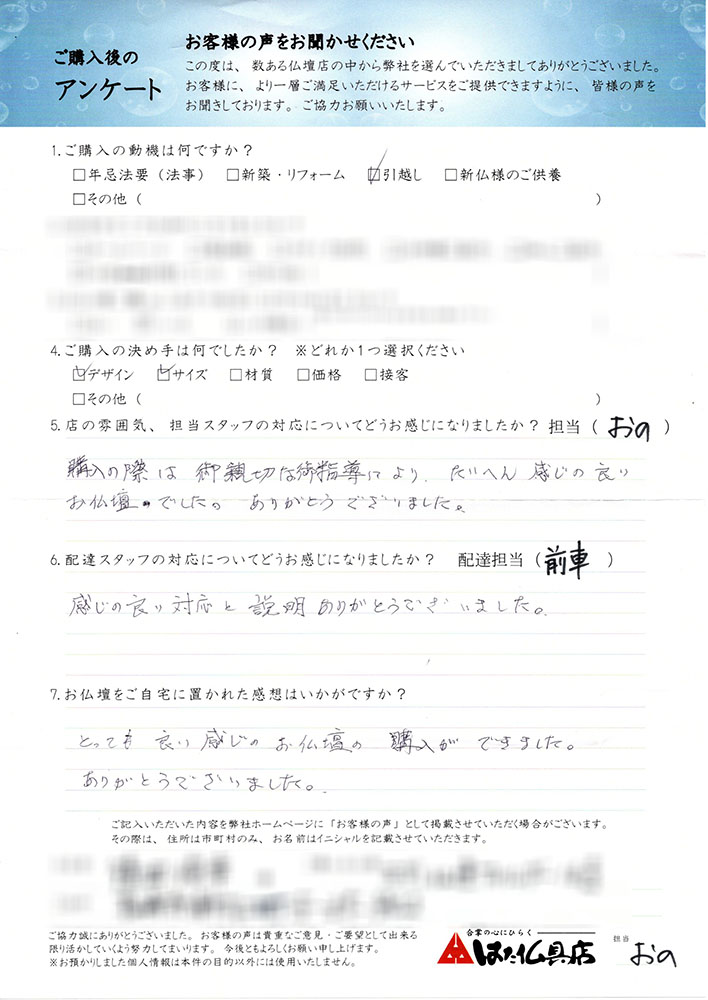 ご購入後の
アンケート
お客様の声をお聞かせください
この度は、数ある仏壇店の中から弊社を選んでいただきましてありがとうございました。
お客様に、より一層ご満足いただけるサービスをご提供できますように、皆様の声を
お聞きしております。ご協力お願いいたします。
1.ご購入の動機は何ですか？
□年忌法要（法事） □新築・リフォーム ☑引越し □新仏様のご供養
□その他（ ）
4.ご購入の決め手は何でしたか？ ※どれか1つ選択ください
☑デザイン ☑サイズ □材質 □価格 □接客
□その他（ ）
5.店の雰囲気、担当スタッフの対応についてどうお感じになりましたか？ 担当（おの）
購入の際は御親切な御指導により、たいへん感じの良い
お仏壇でした。ありがとうございました。
6.配達スタッフの対応についてどうお感じになりましたか？ 配達担当（前車）
感じの良い対応と説明ありがとうございました。
7.お仏壇をご自宅に置かれた感想はいかがですか？
とっても良い感じのお仏壇の購入ができました。
ありがとうございました。
ご記入いただいた内容を弊社ホームページに「お客様の声」として掲載させていただく場合がございます。
その際は、住所は市町村のみ、お名前はイニシャルを記載させていただきます。
ご協力誠にありがとうございました。お客様の声は貴重なご意見・ご要望として出来る
限り活かしていくよう努力してまいります。今後ともよろしくお願い申し上げます。
※お預かりしました個人情報は本件の目的以外には使用いたしません。
合掌の心にひらく
はた仏具店
担当
おの